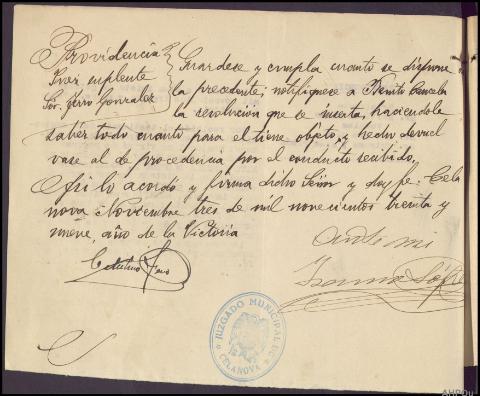 Providencia
Juez suplente
Sor. Feijoo Gonzalez
Guardese y cumpla cuanto se dispone
la precedente; notifiquese a Benito
la resolución que se inserta, haciendole
saber todo cuanto para el tiene objeto, y hecho devuel
vase al de procedencia por el conducto recibido,
Asi lo acordó y firma dicho Señor y doy fe. Cela
nova Noviembre tres de mil novecientos treinta y
nueve, año de la Victoria
Ante mi
JUZGADO MUNICIPAL
CELANOVA
AHPOu